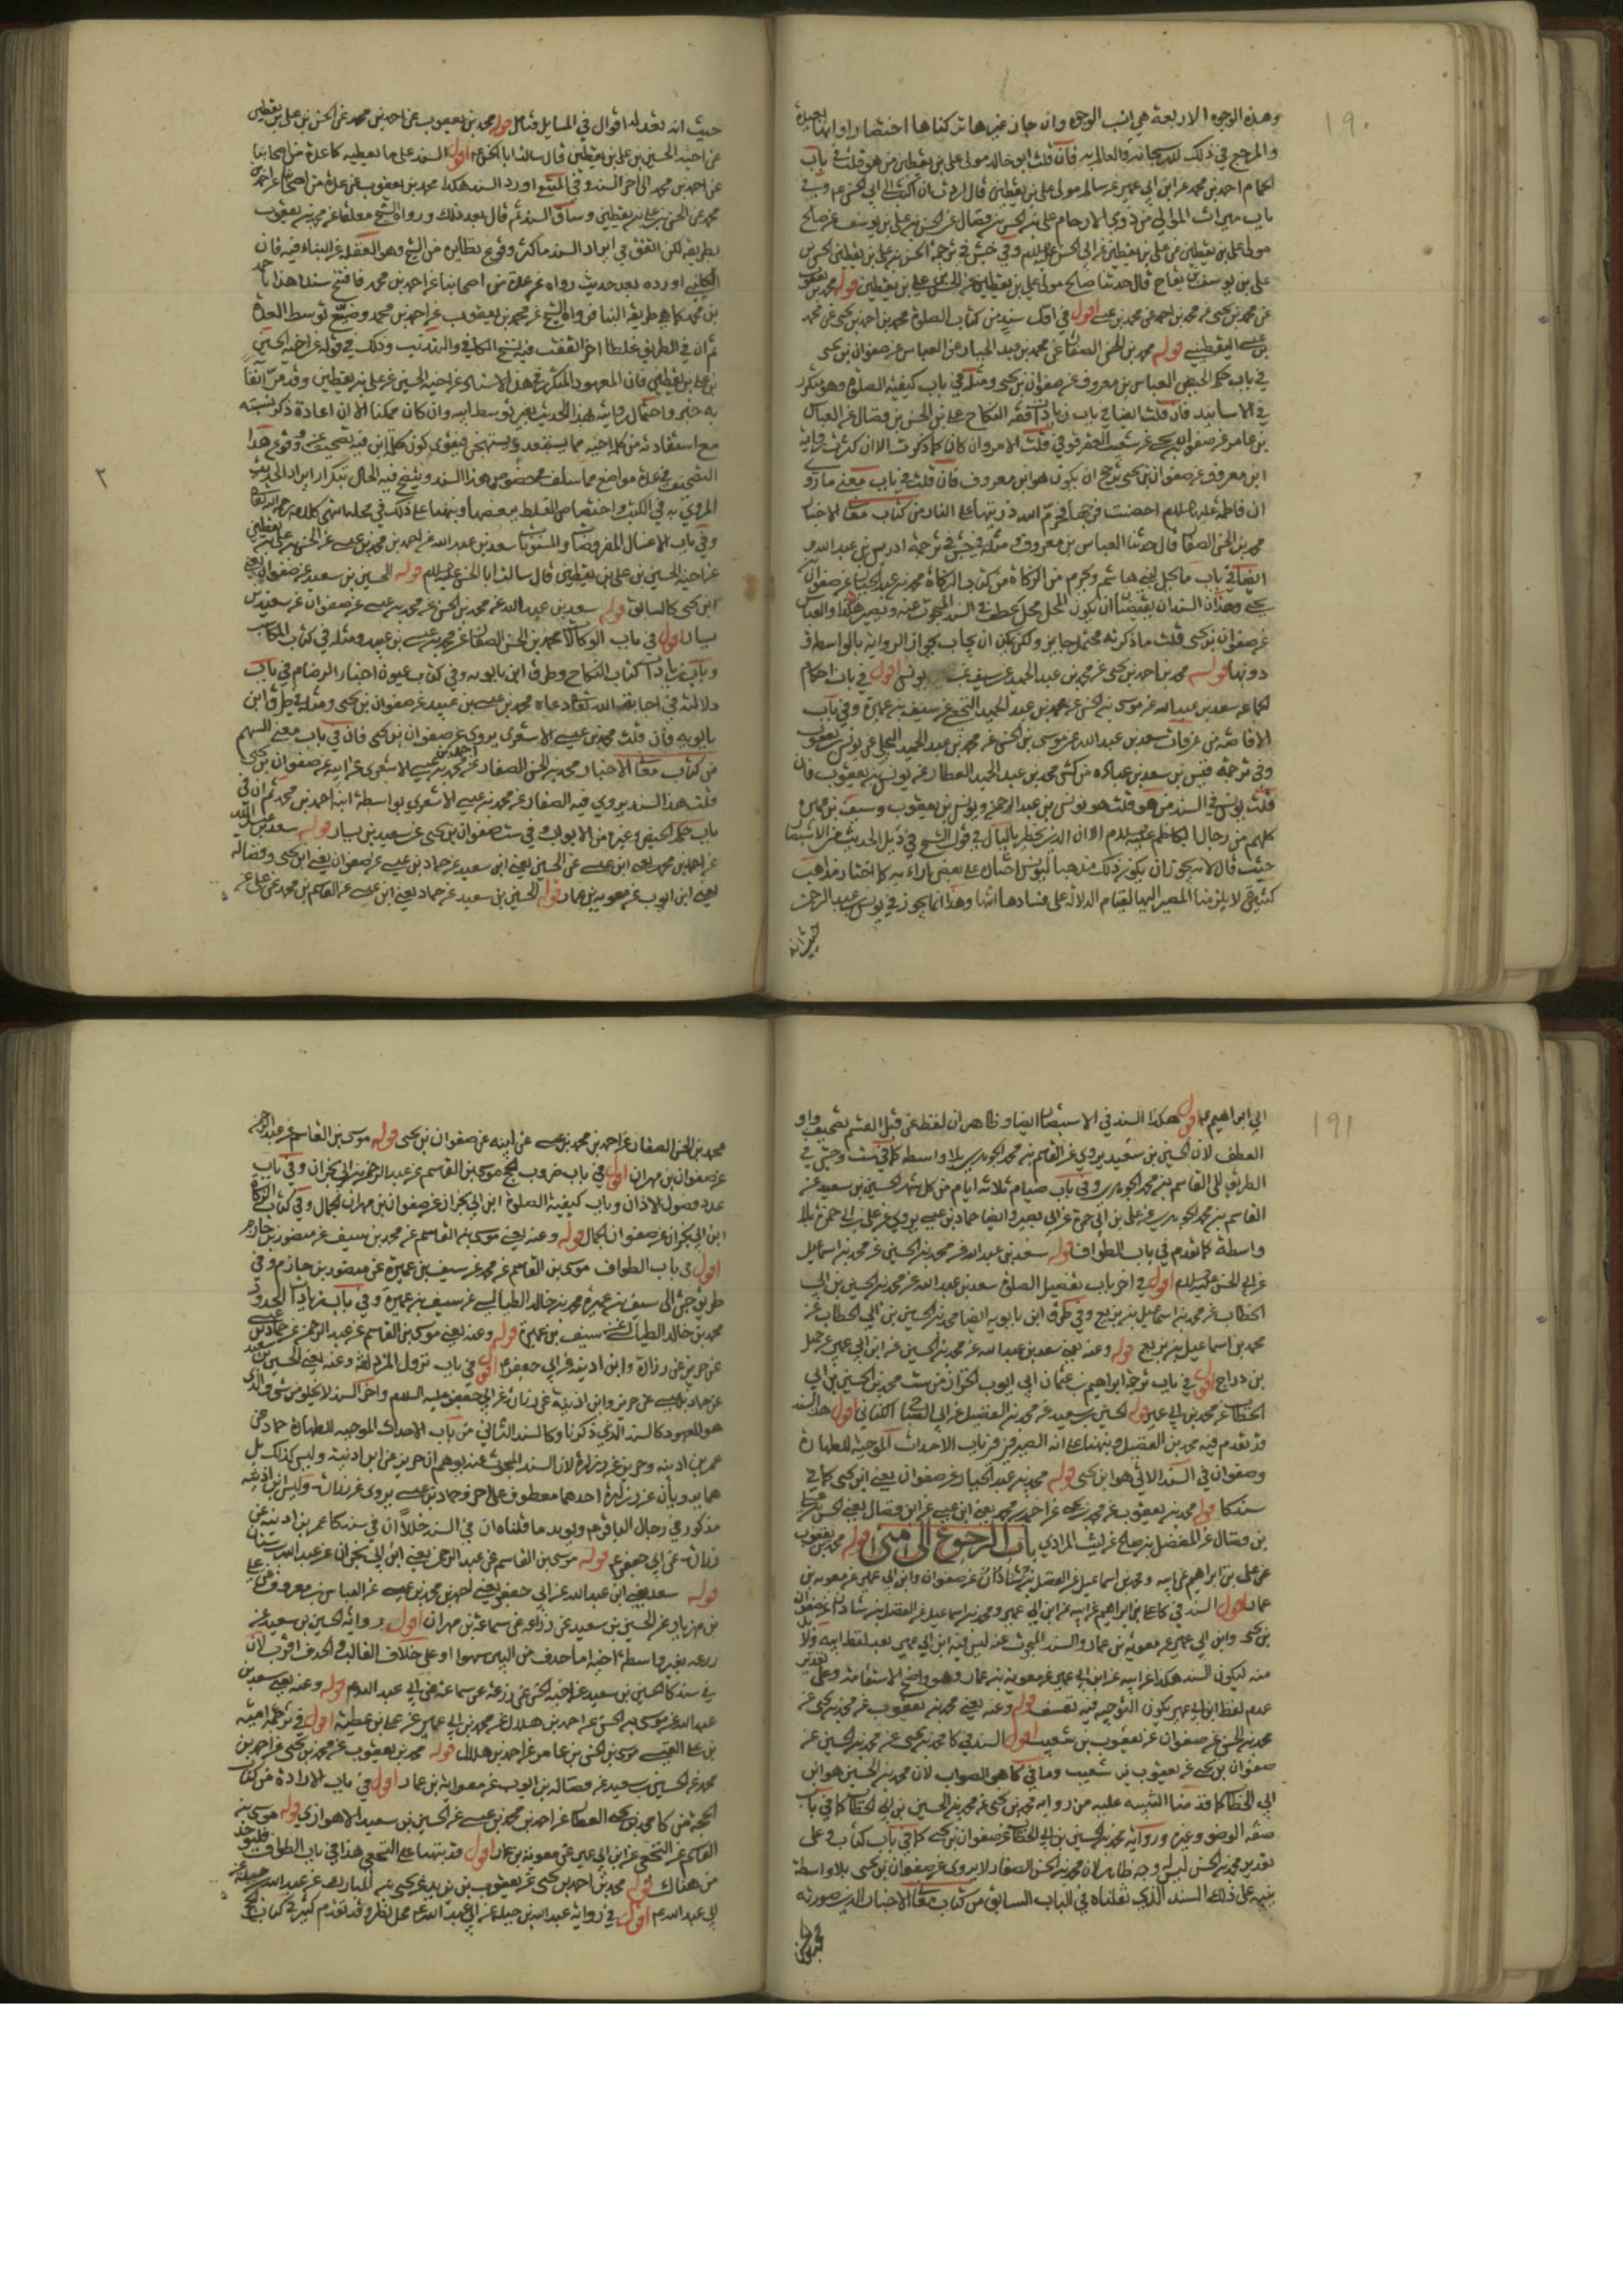 ١٩٠
وهذه الوجوه الاربعة هي انسب الوجوه وان جاز غيرها تركناها اختصارا
والمرجع في ذلك لله سبحانه والعالم به فان قلت ابو خالد مولى علي بن يقطين من هو قلت في باب
الحمام احمد بن محمد عن ابن ابي عمير عن سالم مولى علي بن يقطين قال اردت ان اكتب الى ابي الحسن ع وفي
باب ميراث الموالي من ذوي الارحام علي بن الحسن بن فضال عن الحسن بن علي بن يوسف عن صالح
مولى علي بن يقطين عن علي بن يقطين عن ابي الحسن عليه السلام وفي كش في ترجمة الحسن بن علي بن يقطين
علي بن يوسف بن بقاح قال حدثنا صالح مولى علي بن يقطين عن الحسن بن علي بن يقطين قوله محمد بن يعقوب
عن محمد بن يحيى عن محمد بن احمد عن محمد بن عيسى اقول في اول سند من كتاب الصلوة محمد بن احمد بن يحيى عن محمد
بن عيسى اليقطيني قوله محمد بن الحسن الصفار عن محمد بن عبد الجبار عن العباس عن صفوان بن يحيى
في باب حكم الحيض العباس بن معروف عن صفوان بن يحيى ومثله في باب كيفية الصلوة وهو متكرر
في الاسانيد فان قلت ايضا في باب زيادات فقه النكاح علي بن الحسن بن فضال عن العباس
بن عامر عن صفوان بن يحيى عن شعيب العقرقوفي قلت الامر وان كان كما ذكرت الا ان كثرة رواية
ابن معروف عن صفوان بن يحيى يرجح ان يكون هو ابن معروف فان قلت في باب معنى ما روي
ان فاطمة عليها السلام احصنت فرجها فحرم الله ذريتها على النار من كتاب معاني الاخبار
محمد بن الحسن الصفار قال حدثنا العباس بن معروف ومثله في جش في ترجمة ادريس بن عبد الله و
ايضا في باب ما يحل لبني هاشم ويحرم من الزكاة من كتاب الزكاة محمد بن عبد الجبار عن صفوان بن
يحيى وهذان السندان يقتضيان ان يكون المحل محل عطف في السند المبحوث عنه ويصير هكذا والعباس
عن صفوان بن يحيى قلت ما ذكرته محتمل جايز ولكن يمكن ان يجاب بجواز الرواية بالواسطة و
دونها قوله محمد بن احمد بن يحيى عن محمد بن عبد الحميد عن سيف عن يونس اقول في باب احكام
الجماعة سعد بن عبد الله عن موسى بن الحسن عن محمد بن عبد الحميد النخعي عن سيف بن عميرة وفي باب
الافاضة من عرفات سعد بن عبد الله عن موسى بن الحسن عن محمد بن عبد الحميد البجلي عن يونس بن يعقوب
وفي ترجمة قيس بن سعد بن عبادة من كش محمد بن عبد الحميد العطار عن يونس بن يعقوب فان
قلت يونس في السند من هو قلت هو يونس بن عبد الرحمن ويونس بن يعقوب وسيف بن عميرة
كلهم من رجال الكاظم عليه السلام الا ان الذي يخطر بالبال في قول الشيخ في ذيل الحديث من الاستبصار
حيث قال لانه يجوز ان يكون ذلك مذهبا ليونس اختاره على بعض ارائه كما اختار مذاهب
كثيرة لا يلزمنا المصير اليها لقيام الدلالة على فسادها انتهى وهذا انما يجوز في يونس بن عبد الرحمن
حيث انه
حيث انه تعدد له اقوال في المسايل فتامل قوله محمد بن يعقوب عن احمد بن محمد عن الحسن بن علي بن يقطين
عن اخيه الحسين بن علي بن يقطين قال سالت ابا الحسن ع اقول السند على ما يعطيه كا عدة من اصحابنا
عن احمد بن محمد الى اخر السند وفي المنتقى اورد السند هكذا محمد بن يعقوب عن عدة من اصحابنا عن احمد بن
محمد عن الحسن بن علي بن يقطين وساق السند ثم قال بعد ذلك ورواه الشيخ معلقا عن محمد بن يعقوب
بطريقه لكن اتفق في ايراد السند ما كثر وقوع نظايره من الشيخ وهو الغفلة عن البناء فيه فان
الكليني اورده بعد حديث رواه عن عدة من اصحابنا عن احمد بن محمد فافتتح سند هذا باحمد
بن محمد كما هو طريقة البناء فرواه الشيخ عن محمد بن يعقوب عن احمد بن محمد وضيع توسط العدة
ثم ان في الطريق غلطا اخر اتفقت فيه نسخ الكافي والتهذيب وذلك في قوله عن اخيه الحسين
بن علي بن يقطين فان المعهود المتكرر في هذا الاسناد عن اخيه الحسين عن علي بن يقطين وقد مر انفا
به خبر واحتمال روايته لهذا الحديث بغير توسط ابيه وان كان ممكنا الا ان اعادة ذكر نسبته
مع استفادته من كلمة اخيه مما يستبعد ويستهجن فيقوى كون كلمة ابن فيه تصحيف عن ووقوع هذا
التصحيف في عدة مواضع مما سلف في خصوص هذا السند ويتضح فيه الحال بتكرار ايراد الحديث
المروي به في الكتب واختصاص الغلط ببعضها ونبهنا على ذلك في محله انتهى كلامه رحمه الله تعالى
وفي باب الاغسال المفروضات والمسنونات سعد بن عبد الله عن احمد بن محمد بن عيسى عن الحسن بن علي بن يقطين
عن اخيه الحسين بن علي بن يقطين قال سالت ابا الحسن عليه السلام قوله الحسين بن سعيد عن صفوان يعني
ابن يحيى كالسابق قوله سعد بن عبد الله عن محمد بن الحسن عن محمد بن عيسى عن صفوان عن سعيد بن
يسار اقول في باب الوكالات محمد بن الحسن الصفار عن محمد بن عيسى بن عبيد ومثله في كتاب المكاسب
وباب زيادات كتاب النكاح وطرق ابن بابويه وفي كتاب عيون اخبار الرضا ع في باب
دلالته في اجابة الله تعالى دعاه محمد بن عيسى بن عبيد عن صفوان بن يحيى ومثله في طرق ابن
بابويه فان قلت محمد بن عيسى الاشعري يروي عن صفوان بن يحيى فان في باب معنى السهم
من كتاب معاني الاخبار محمد بن الحسن الصفار عن احمد بن محمد بن عيسى الاشعري عن ابيه عن صفوان بن يحيى
قلت هذا السند يروي فيه الصفار عن محمد بن عيسى الاشعري بواسطة ابنه احمد بن محمد ثم ان في
باب حكم الحيض وغيره من الابواب وفي ست صفوان بن يحيى عن سعيد بن يسار قوله سعد بن عبد الله
عن احمد بن محمد يعني ابن عيسى عن الحسين يعني ابن سعيد عن حماد بن عيسى عن صفوان يعني ابن يحيى وفضالة
يعني ابن ايوب عن معوية بن عمار قوله الحسين بن سعيد عن حماد يعني ابن عيسى عن القاسم بن محمد عن علي عن
٢
١٩١
ابي ابراهيم ع اقول هكذا السند في الاستبصار ايضا وظاهر ان لفظ عن قبل القسم تصحيف واو
العطف لان الحسين بن سعيد يروي عن القاسم بن محمد الجوهري بلا واسطة كما في ست وجش في
الطريق الى القاسم بن محمد الجوهري وفي باب صيام ثلاثة ايام من كل شهر الحسين بن سعيد عن
القاسم بن محمد الجوهري عن علي بن ابي حمزة عن ابي بصير وايضا حماد بن عيسى يروي عن علي بن ابي حمزة بلا
واسطة كما تقدم في باب الطواف قوله سعد بن عبد الله عن محمد بن الحسين عن محمد بن اسماعيل
عن ابي الحسن عليه السلام اقول في اخر باب تفصيل الصلوة سعد بن عبد الله عن محمد بن الحسين بن ابي
الخطاب عن محمد بن اسماعيل بن بزيع وفي طرق ابن بابويه ايضا محمد بن الحسين بن ابي الخطاب عن
محمد بن اسماعيل بن بزيع قوله وعنه يعني سعد بن عبد الله عن محمد بن الحسين عن ابن ابي عمير عن جميل
بن دراج اقول في باب ترجمة ابراهيم بن عثمان ابي ايوب الخزاز من ست محمد بن الحسين بن ابي
الخطاب عن محمد بن ابي عمير قوله الحسين بن سعيد عن محمد بن الفضيل عن ابي الصباح الكناني اقول هذا السند
قد تقدم فيه محمد بن الفضيل ونبهنا على انه الصيرفي في باب الاحداث الموجبة للطهارة
وصفوان في السند الاتي هو ابن يحيى قوله محمد بن عبد الجبار عن صفوان يعني ابن يحيى كما في
سند كا قوله محمد بن يعقوب عن محمد بن يحيى عن احمد بن محمد يعني ابن عيسى عن ابن فضال يعني الحسن بن علي
بن فضال عن المفضل بن صالح عن ليث المرادي باب الرجوع الى منى قوله محمد بن يعقوب
عن علي بن ابراهيم عن ابيه ومحمد بن اسماعيل عن الفضل بن شاذان عن صفوان وابن ابي عمير عن معوية بن
عمار اقول السند في كا علي بن ابراهيم عن ابيه عن ابن ابي عمير ومحمد بن اسماعيل عن الفضل بن شاذان عن صفوان
بن يحيى وابن ابي عمير عن معوية بن عمار والسند المبحوث عنه ليس فيه ابن ابي عمير بعد لفظ ابيه ولا
منه ليكون السند هكذا عن ابيه عن ابن ابي عمير عن معوية بن عمار وهو واضح الاستقامة وعلى تقدير
عدم لفظ ابن ابي عمير يكون التوجيه فيه تعسف قوله وعنه يعني محمد بن يعقوب عن محمد بن يحيى عن
محمد بن الحسن عن صفوان عن يعقوب بن شعيب اقول السند في كا محمد بن يحيى عن محمد بن الحسين عن
صفوان بن يحيى عن يعقوب بن شعيب وما في كا هو الصواب لان محمد بن الحسين هو ابن
ابي الخطاب كما قدمنا التنبيه عليه من رواية محمد بن يحيى عن محمد بن الحسين بن ابي الخطاب كما في باب
صفة الوضوء وغيره ورواية محمد بن الحسين بن ابي الخطاب عن صفوان بن يحيى كما في باب كتاب وعلى
تقدير محمد بن الحسن ليس له وجه ظاهر لان محمد بن الحسن الصفار لا يروي عن صفوان بن يحيى بلا واسطة
ينبه على ذلك السند الذي نقلناه في الباب السابق من كتاب معاني الاخبار الذي صورته
محمد بن الحسن
محمد بن الحسن الصفار عن احمد بن محمد بن عيسى عن ابيه عن صفوان بن يحيى قوله موسى بن القاسم عن عبد الرحمن
عن صفوان بن مهران اقول في باب ضروب الحج موسى بن القاسم عن عبد الرحمن بن ابي نجران وفي باب
عدد فصول الاذان وباب كيفية الصلوة ابن ابي نجران عن صفوان بن مهران الجمال وفي كتاب الزكاة
ابن ابي نجران عن صفوان الجمال قوله وعنه يعني موسى بن القاسم عن محمد بن سيف عن منصور بن حازم
اقول في باب الطواف موسى بن القاسم عن محمد عن سيف بن عميرة عن منصور بن حازم وفي
طريق جش الى سيف بن عميرة محمد بن خالد الطيالسي عن سيف بن عميرة وفي باب زيادات الحدود
محمد بن خالد الطيالسي عن سيف بن عميرة قوله وعنه يعني موسى بن القاسم عن عبد الرحمن عن حماد بن عيسى
عن حريز عن زرارة وابن اذينة عن ابي جعفر ع اقول في باب نزول المزدلفة وعنه يعني الحسين بن سعيد
عن حماد بن عيسى عن حريز وابن اذينة عن زرارة عن ابي جعفر عليه السلام واخر السند لا يخلو من شيء والذي
هو المعهود كالسند الذي ذكرنا وكالسند الثاني من باب الاحداث الموجبة للطهارة حماد عن
عمر بن اذينة وحريز عن زرارة لان السند المبحوث عنه يوهم ان حريز عن ابن اذينة وليس كذلك بل
هما يرويان عن زرارة احدهما معطوف على الاخر وحماد بن عيسى يروي عن زرارة وليس ابن اذينة
مذكور في رجال الباقر ع ويويد ما قلناه ان في السند خللا ان في سند كا عمر بن اذينة عن
زرارة عن ابي جعفر ع قوله موسى بن القاسم عن عبد الرحمن يعني ابن ابي نجران عن عبد الله بن سنان
قوله سعد يعني ابن عبد الله عن ابي جعفر يعني احمد بن محمد بن عيسى عن العباس بن معروف عن علي
بن مهزيار عن الحسين بن سعيد عن زرعة عن سماعة بن مهران اقول رواية الحسين بن سعيد عن
زرعة بغير واسطة اخيه اما حذف من البين سهوا او على خلاف الغالب والحذف اقرب لان
في سند كا الحسين بن سعيد عن اخيه الحسن عن زرعة عن سماعة عن ابي عبد الله ع قوله وعنه يعني سعد بن
عبد الله عن موسى بن الحسن عن احمد بن هلال عن محمد بن ابي عمير عن علي بن عطية اقول في ترجمة امية
بن علي القيسي موسى بن الحسن بن عامر عن احمد بن هلال قوله محمد بن يعقوب عن محمد بن يحيى عن احمد بن
محمد عن الحسين بن سعيد عن فضالة بن ايوب عن معوية بن عمار اقول في باب الارادة من كتاب
الحجة من كا محمد بن يحيى العطار عن احمد بن محمد بن عيسى عن الحسين بن سعيد الاهوازي قوله موسى بن
القاسم عن النخعي عن ابن ابي عمير عن معوية بن عمار اقول قد نبهنا على النخعي هذا في باب الطواف فليؤخذ
من هناك قوله محمد بن احمد بن يحيى عن يعقوب بن يزيد عن يحيى بن المبارك عن عبد الله بن جبلة عن
ابي عبد الله ع اقول في رواية عبد الله بن جبلة عن ابي عبد الله ع محل نظر وقد تقدم كثير في كتاب الحج